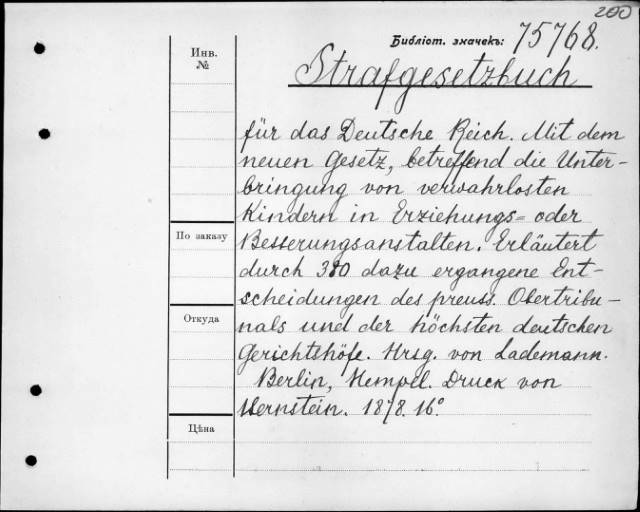 200
Библіот. значекъ: 75768.
Инв.
№
Strafgesetzbuch
für das Deutsche Reich. Mit dem
neuen Gesetz, betreffend die Unter-
bringung von verwahrlosten
Kindern in Erziehungs= oder
По заказу
Besserungsanstalten. Erläutert
durch 380 dazu ergangene Ent-
scheidungen des preuss. Obertribu-
Откуда
nals und der höchsten deutschen
Gerichtshöfe. Hrsg. von Lademann.
Berlin, Hempel. Druck von
Bernstein. 1878. 16°.
Цѣна